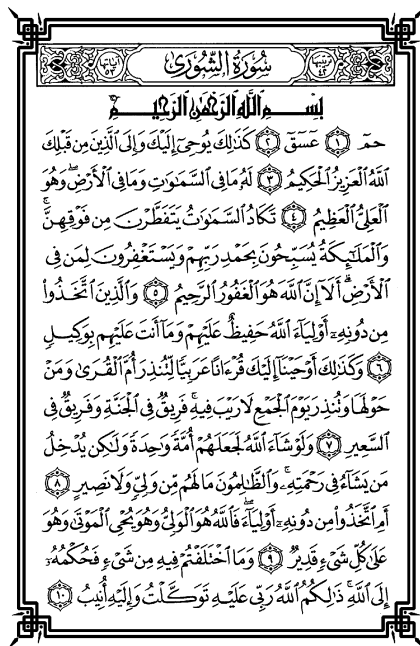 ترتيبها ٤٢ سُورَةُ الشُّورَىٰ آياتها ٥٣
بِسْمِ اللَّهِ الرَّحْمَٰنِ الرَّحِيمِ
حمٓ ١ عٓسٓقٓ ٢ كَذَٰلِكَ يُوحِىٓ إِلَيْكَ وَإِلَى الَّذِينَ مِن قَبْلِكَ
اللَّهُ الْعَزِيزُ الْحَكِيمُ ٣ لَهُۥ مَا فِى السَّمَٰوَٰتِ وَمَا فِى الْأَرْضِ ۖ وَهُوَ
الْعَلِىُّ الْعَظِيمُ ٤ تَكَادُ السَّمَٰوَٰتُ يَتَفَطَّرْنَ مِن فَوْقِهِنَّ ۚ
وَالْمَلَٰٓئِكَةُ يُسَبِّحُونَ بِحَمْدِ رَبِّهِمْ وَيَسْتَغْفِرُونَ لِمَن فِى
الْأَرْضِ ۗ أَلَآ إِنَّ اللَّهَ هُوَ الْغَفُورُ الرَّحِيمُ ٥ وَالَّذِينَ اتَّخَذُوا۟
مِن دُونِهِۦٓ أَوْلِيَآءَ اللَّهُ حَفِيظٌ عَلَيْهِمْ وَمَآ أَنتَ عَلَيْهِم بِوَكِيلٍ
٦ وَكَذَٰلِكَ أَوْحَيْنَآ إِلَيْكَ قُرْءَانًا عَرَبِيًّا لِّتُنذِرَ أُمَّ الْقُرَىٰ وَمَنْ
حَوْلَهَا وَتُنذِرَ يَوْمَ الْجَمْعِ لَا رَيْبَ فِيهِ ۚ فَرِيقٌ فِى الْجَنَّةِ وَفَرِيقٌ فِى
السَّعِيرِ ٧ وَلَوْ شَآءَ اللَّهُ لَجَعَلَهُمْ أُمَّةً وَٰحِدَةً وَلَٰكِن يُدْخِلُ
مَن يَشَآءُ فِى رَحْمَتِهِۦ ۚ وَالظَّٰلِمُونَ مَا لَهُم مِّن وَلِىٍّ وَلَا نَصِيرٍ ٨
أَمِ اتَّخَذُوا۟ مِن دُونِهِۦٓ أَوْلِيَآءَ ۖ فَاللَّهُ هُوَ الْوَلِىُّ وَهُوَ يُحْىِ الْمَوْتَىٰ وَهُوَ
عَلَىٰ كُلِّ شَىْءٍ قَدِيرٌ ٩ وَمَا اخْتَلَفْتُمْ فِيهِ مِن شَىْءٍ فَحُكْمُهُۥٓ
إِلَى اللَّهِ ۚ ذَٰلِكُمُ اللَّهُ رَبِّى عَلَيْهِ تَوَكَّلْتُ وَإِلَيْهِ أُنِيبُ ١٠